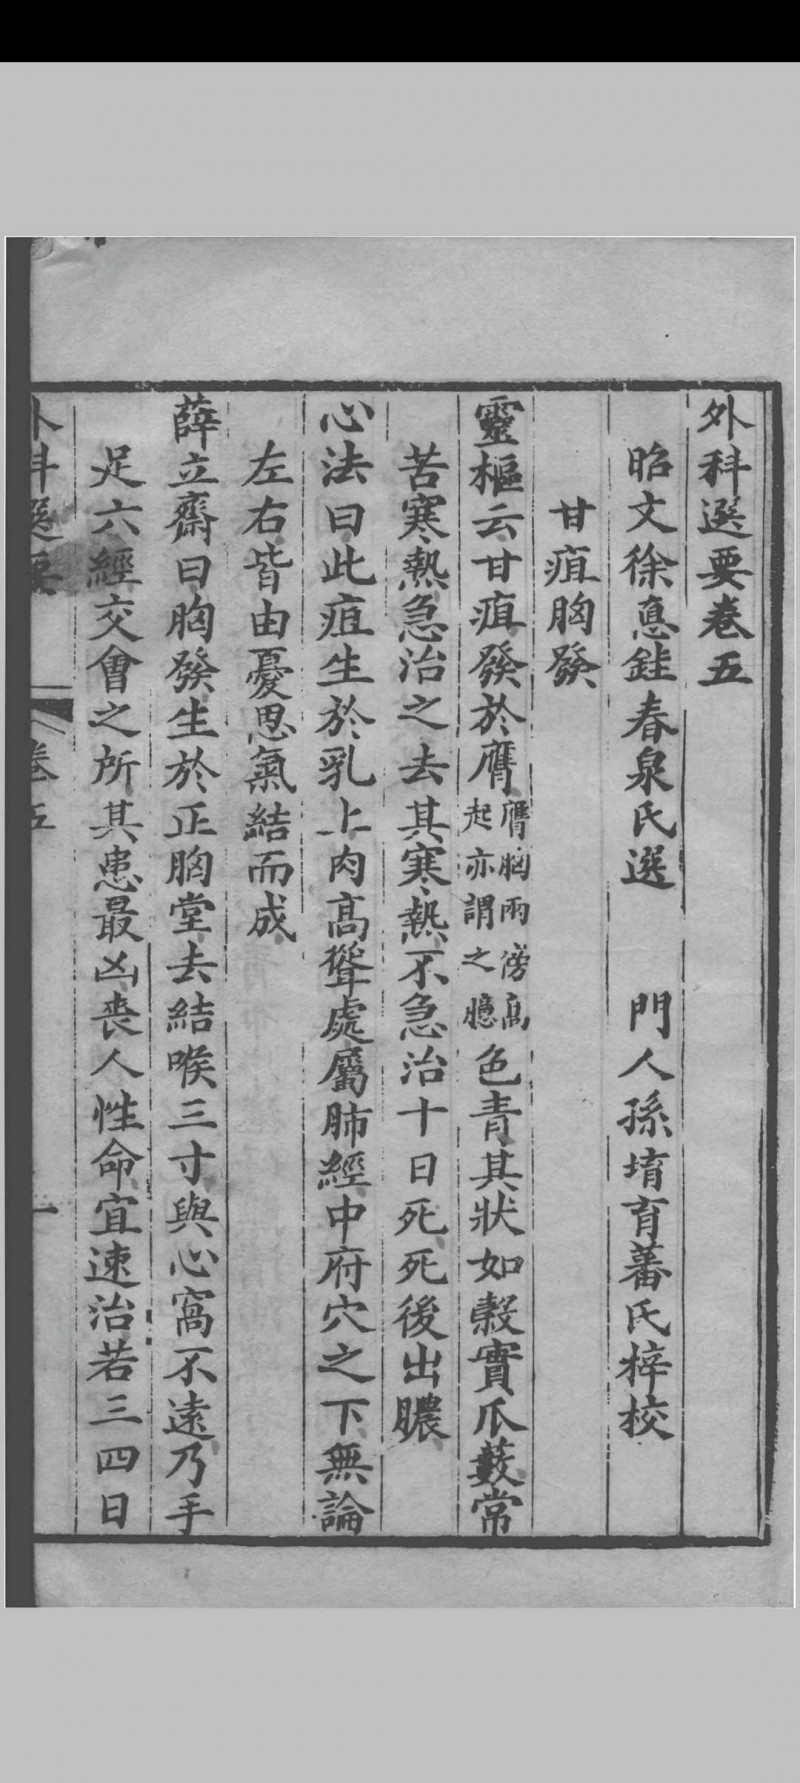 外科選要卷五
昭文徐惪銈春泉氏選　門人孫堉育蕃氏梓校
甘疽胸發
靈樞云甘疽發於膺膺胸兩傍高起亦謂之臆色青其狀如榖實瓜蔞常
苦寒熱急治之去其寒熱不急治十日死死後出膿
心法曰此疽生於乳上肉高聳處屬肺經中府穴之下無論
左右皆由憂思氣結而成
薛立齋曰胸發生於正胸堂去結喉三寸與心窩不遠乃手
足六經交會之所其患最凶喪人性命宜速治若三四日
外科選要　卷五　一